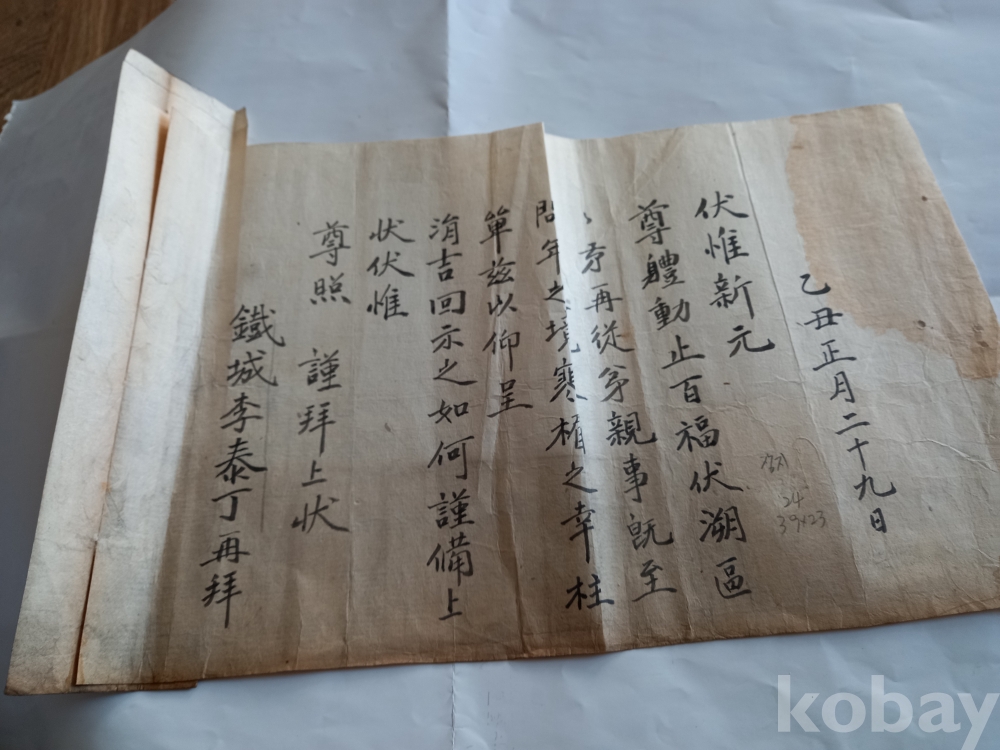 乙丑正月二十九日
伏惟新元
尊軆動止百福伏溯區
弟再從弟親事旣至
問年之境寒楣之幸柱
單玆以仰呈
涓吉回示之如何謹備上
狀伏惟
尊照 謹拜上狀
鐵城李泰丁再拜
24
39x23
kobay